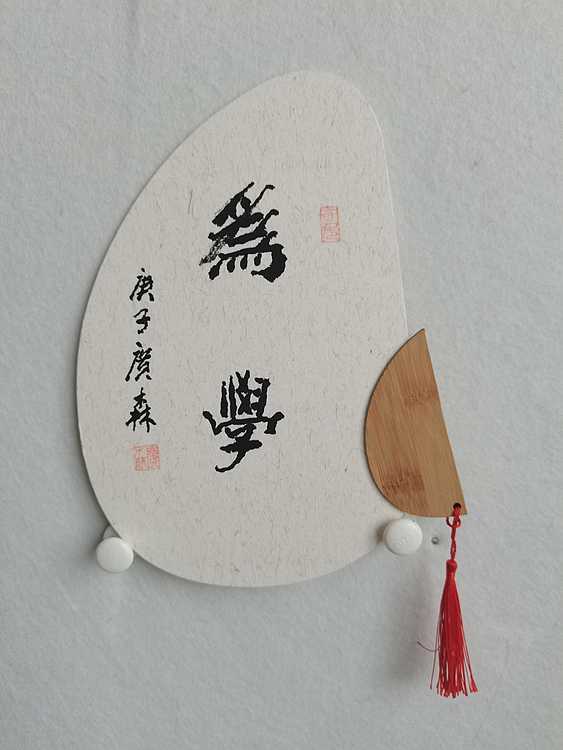 為學
庚子廣森